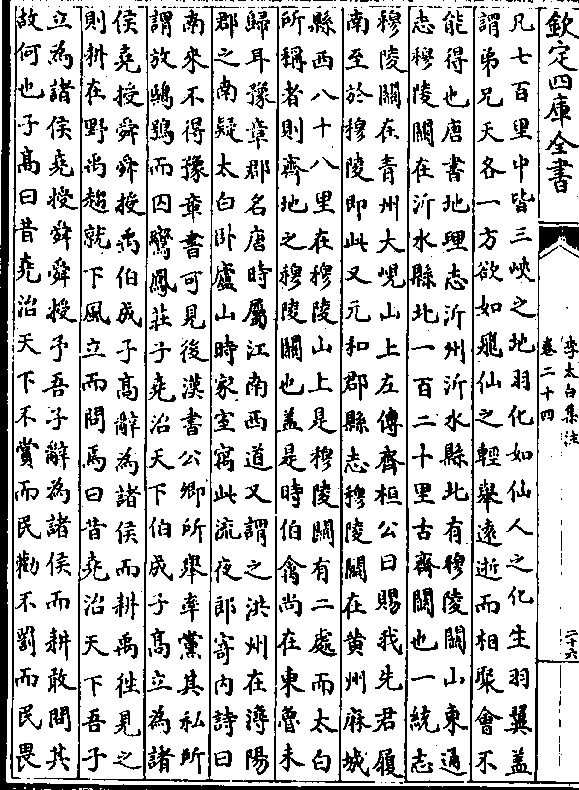 欽定四庫全書
李太白集注
卷二十四
二十六
凡七百里中皆三峽之地羽化如仙人之化生羽翼蓋
謂弟兄天各一方欲如飛仙之輕舉遠逝而相聚會不
能得也唐書地理志沂州沂水縣北有穆陵關山東通
志穆陵關在沂水縣北一百二十里古齊關也一統志
穆陵關在青州大峴山上左傳齊桓公曰賜我先君履
南至於穆陵即此又元和郡縣志穆陵關在黄州麻城
縣西八十八里在穆陵山上是穆陵關有二處而太白
所稱者則齊地之穆陵關也蓋是時伯禽尚在東魯未
歸耳豫章郡名唐時屬江南西道又謂之洪州在潯陽
郡之南疑太白卧廬山時家室寓此流夜郎寄内詩曰
南來不得豫章書可見後漢書公卿所舉率黨其私所
謂放鴟鴞而囚鸞鳳莊子堯治天下伯成子髙立為諸
侯堯授舜舜授禹伯成子髙辭為諸侯而耕禹徃見之
則耕在野禹趨就下風立而問焉曰昔堯治天下吾子
立為諸侯堯授舜舜授予吾子辭為諸侯而耕敢問其
故何也子髙曰昔堯治天下不賞而民勸不罰而民畏